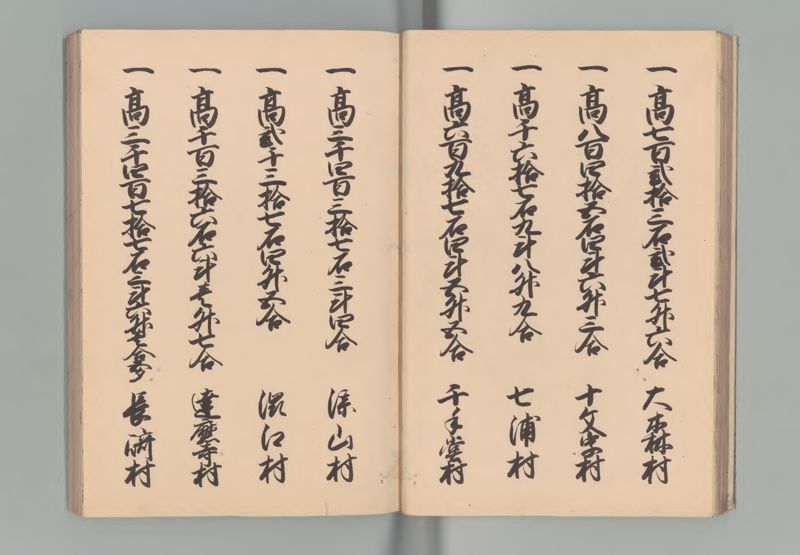 一 高七百弐拾三石弐斗七升六合 大森村
一 高八百四拾五石四斗六升三合 十文字村
一 高千六拾七石九斗八升九合 七浦村
一 高六百九拾七石四斗五升五合 千手堂村
一 高三千四百三拾七石三斗四合 漆山村
一 高弐千三拾七石四升五合 渋江村
一 高千百三拾六石六斗壱升七合 達磨寺村
一 高三千四百七拾七石三斗六升七合 長崎村